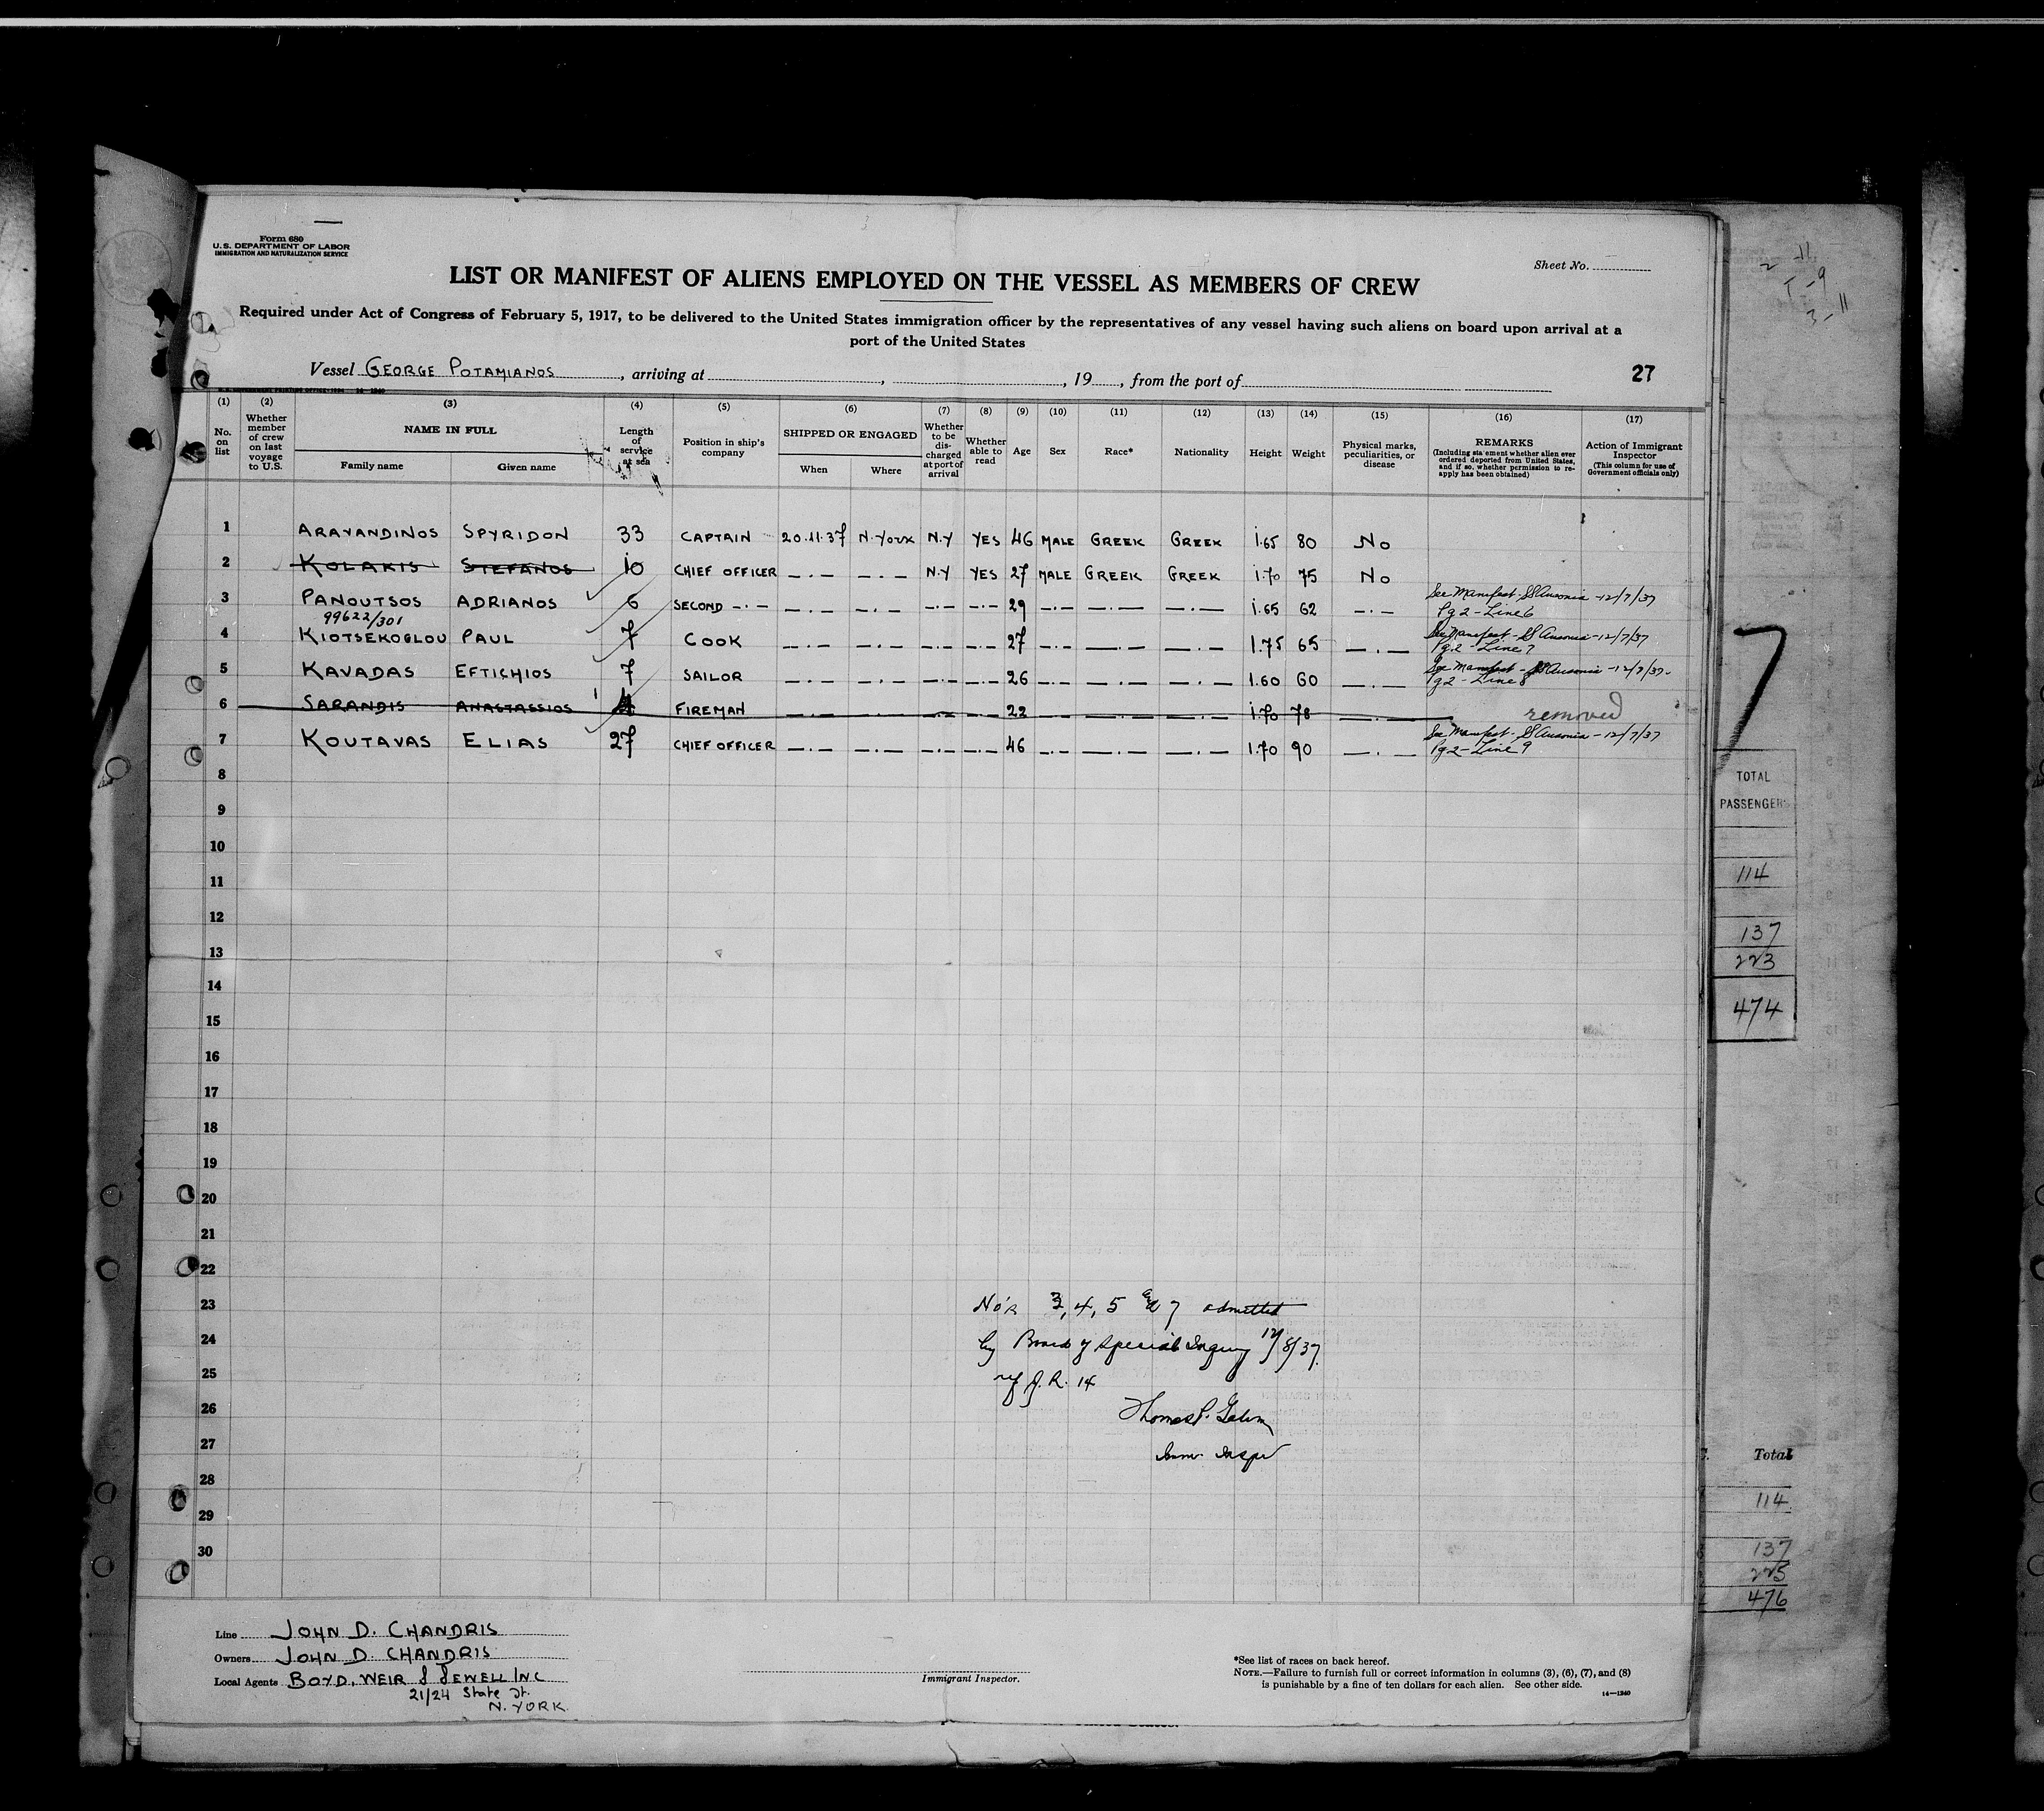 Form 680
U.S. DEPARTMENT OF LABOR
IMMIGRATION AND NATURALIZATION SERVICE
Sheet No.
LIST OR MANIFEST OF ALIENS EMPLOYED ON THE VESSEL AS MEMBERS OF CREW
Required under Act of Congress of February 5, 1917, to be delivered to the United States immigration officer by the representatives of any vessel having such aliens on board upon arrival at a
port of the United States
Vessel GEORGE POTAMIANOS, arriving at , , 19 , from the port of
27
(1) No. on list
(2) Whether member of crew on last voyage to U.S.
(3) NAME IN FULL Family name Given name
(4) Length of service at sea
(5) Position in ship's company
(6) SHIPPED OR ENGAGED When Where
(7) Whether to be discharged at port of arrival
(8) Whether able to read
(9) Age
(10) Sex
(11) Race*
(12) Nationality
(13) Height
(14) Weight
(15) Physical marks, peculiarities, or disease
(16) REMARKS (Including statement whether alien ever ordered deported from United States, and if so, whether permission to reapply has been obtained)
(17) Action of Immigrant Inspector (This column for use of Government officials only)
1 ARAVANDINOS SPYRIDON 33 CAPTAIN 20.11.37 N.York N.Y YES 46 MALE GREEK GREEK 1.65 80 No
2 KOLAKIS STEFANOS 10 CHIEF OFFICER —·— —·— N.Y YES 27 MALE GREEK GREEK 1.70 75 No
3 PANOUTSOS ADRIANOS 6 SECOND —·— —·— —·— —·— —·— 29 —·— —·— —·— 1.65 62 —·— See Manifest - SS Ausonia - 12/7/37
Pg 2 - Line 6
99622/301
4 KIOTSEKOGLOU PAUL 7 COOK —·— —·— —·— —·— 27 —·— —·— —·— 1.75 65 —·— See Manifest - SS Ausonia - 12/7/37
Pg 2 - Line 7
5 KAVADAS EFTICHIOS 7 SAILOR —·— —·— —·— —·— 26 —·— —·— —·— 1.60 60 —·— See Manifest - SS Ausonia - 12/7/37
Pg 2 - Line 8
6 SARANDIS ANASTASSIOS 4 FIREMAN —·— —·— —·— —·— 22 —·— —·— —·— 1.70 78 —·— removed
7 KOUTAVAS ELIAS 27 CHIEF OFFICER —·— —·— —·— —·— 46 —·— —·— —·— 1.70 90 —·— See Manifest - SS Ausonia - 12/7/37
Pg 2 - Line 9
8
9
10
11
12
13
14
15
16
17
18
19
20
21
22
23
24
25
26
27
28
29
30
No's 3, 4, 5 & 7 admitted
by Board of Special Inquiry 12/8/37.
Thomas P.
Imm. Inspr
Line JOHN D. CHANDRIS
Owners JOHN D. CHANDRIS
Local Agents BOYD, WEIR & SEWELL INC
21/24 State St.
N. YORK.
Immigrant Inspector.
*See list of races on back hereof.
NOTE.—Failure to furnish full or correct information in columns (3), (6), (7), and (8)
is punishable by a fine of ten dollars for each alien. See other side.
14—1240
7
TOTAL
PASSENGERS
114
137
223
474
Total
114
137
225
476